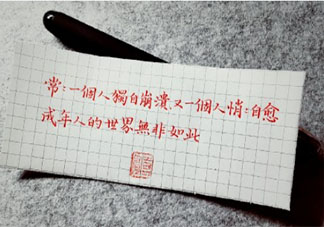 常:一個人獨自崩潰又一個人悄:自愈
成年人的世界無非如此